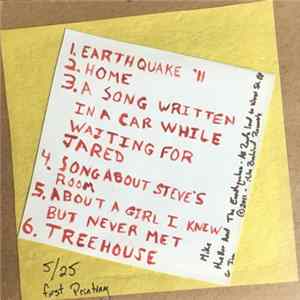 1. EARTHQUAKE '11
2. HOME
3. A SONG WRITTEN
IN A CAR WHILE
WAITING FOR
JARED
4. SONG ABOUT STEVE'S
ROOM
5. ABOUT A GIRL I KNEW
BUT NEVER MET
6. TREEHOUSE
Mike
And The Earthquake
©2011
Records
5/25
First Printing